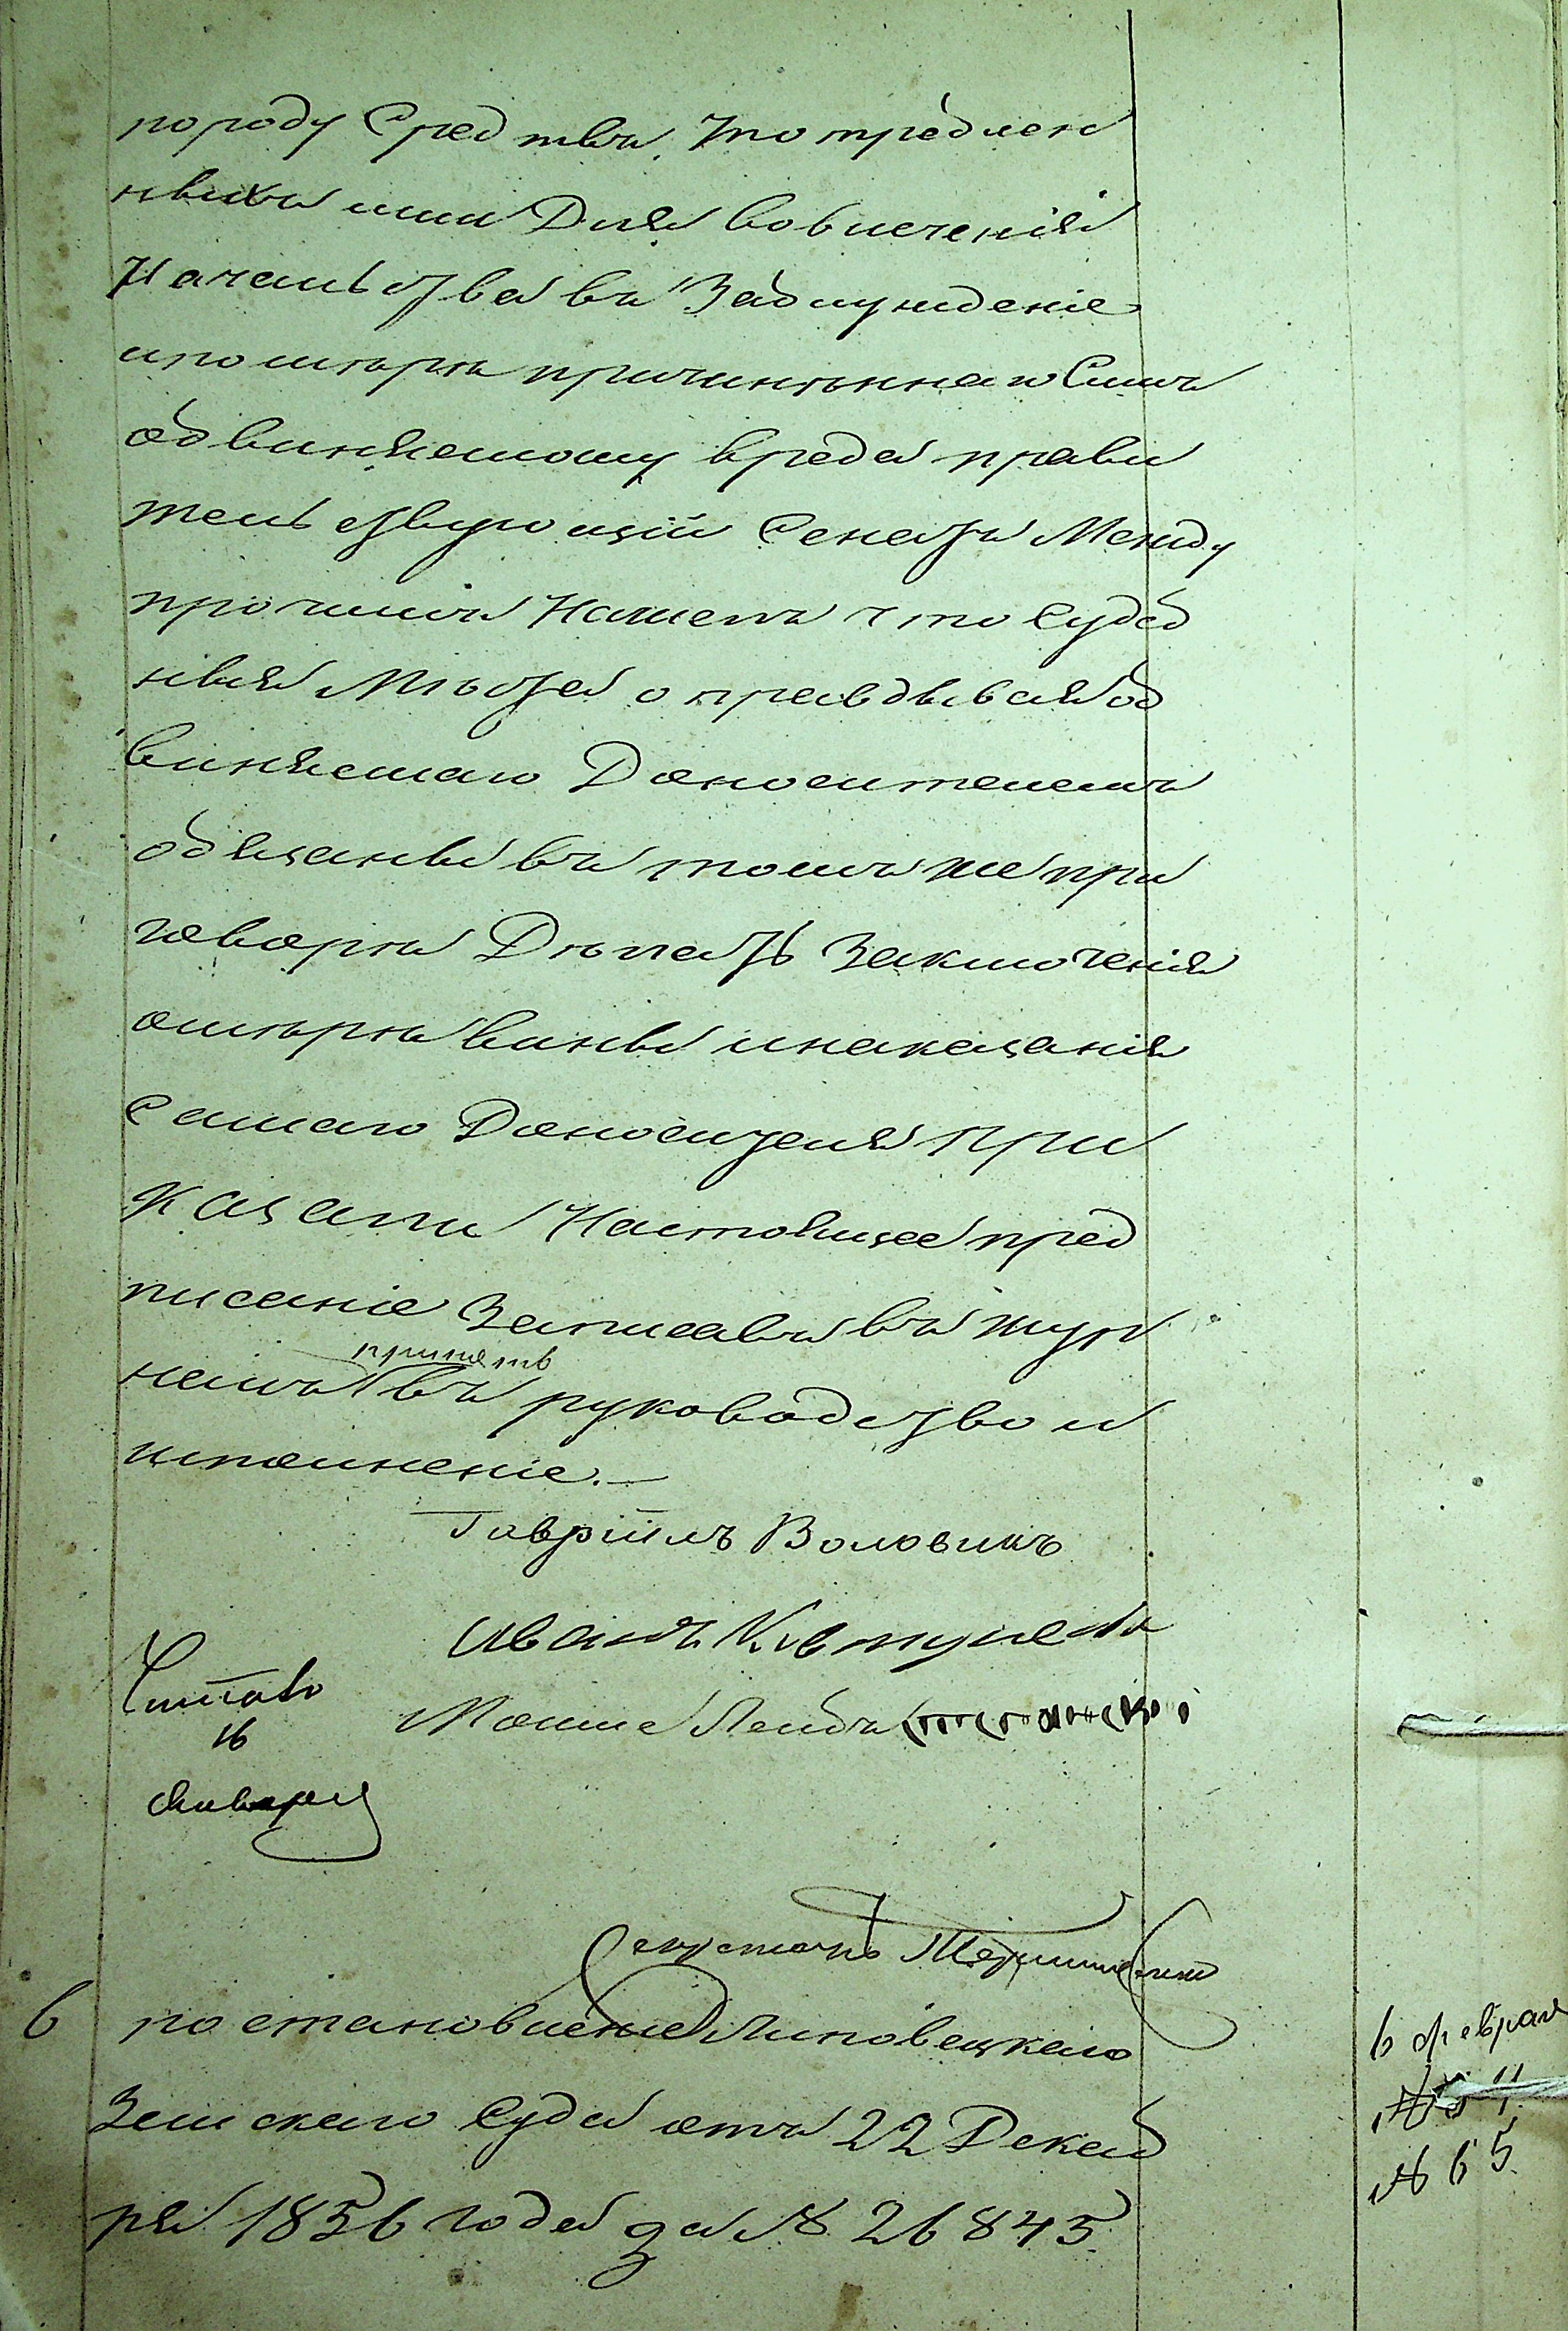 породу Средствъ, Употреблен
ныхъ ими Для вовлеченія
Начальства въ Заблужденіе
и по мѣрѣ причинѣннаго Симъ
обвиняемому вреда прави
тельствующій Сенатъ Между
прочимъ Нашелъ что Судеб
ныя Мѣста оправдывая об
виняемаго Доносителемъ
обязаны въ томъ же при
говорѣ Дѣлать Заключенія
омѣрѣ вины инаказанія
Самаго Доносителя При
казали Настоящее пред
писаніе Записавъ въ жур
принять
налъ въ руководство и
исполненіе.—
Гавріилъ Воловикъ
Иванъ
Мошие Лейбъ
Читалъ
16
Января
Секретарь
6 постановленіе Липовецкаго
Земскаго Суда отъ 22 Декаб
ря 1856 года за № 26845
6 февраля
№ 65